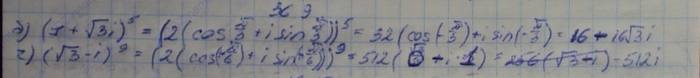 36 9
б) (1 + √3i)^5 = (2(cos π/3 + i sin π/3))^5 = 32(cos(-π/3) + i sin(-π/3) = 16 + 16√3i
г) (√3 - i)^9 = (2(cos(-π/6) + i sin(-π/6)))^9 = 512( + i · ) = (√3 - i) - 512i